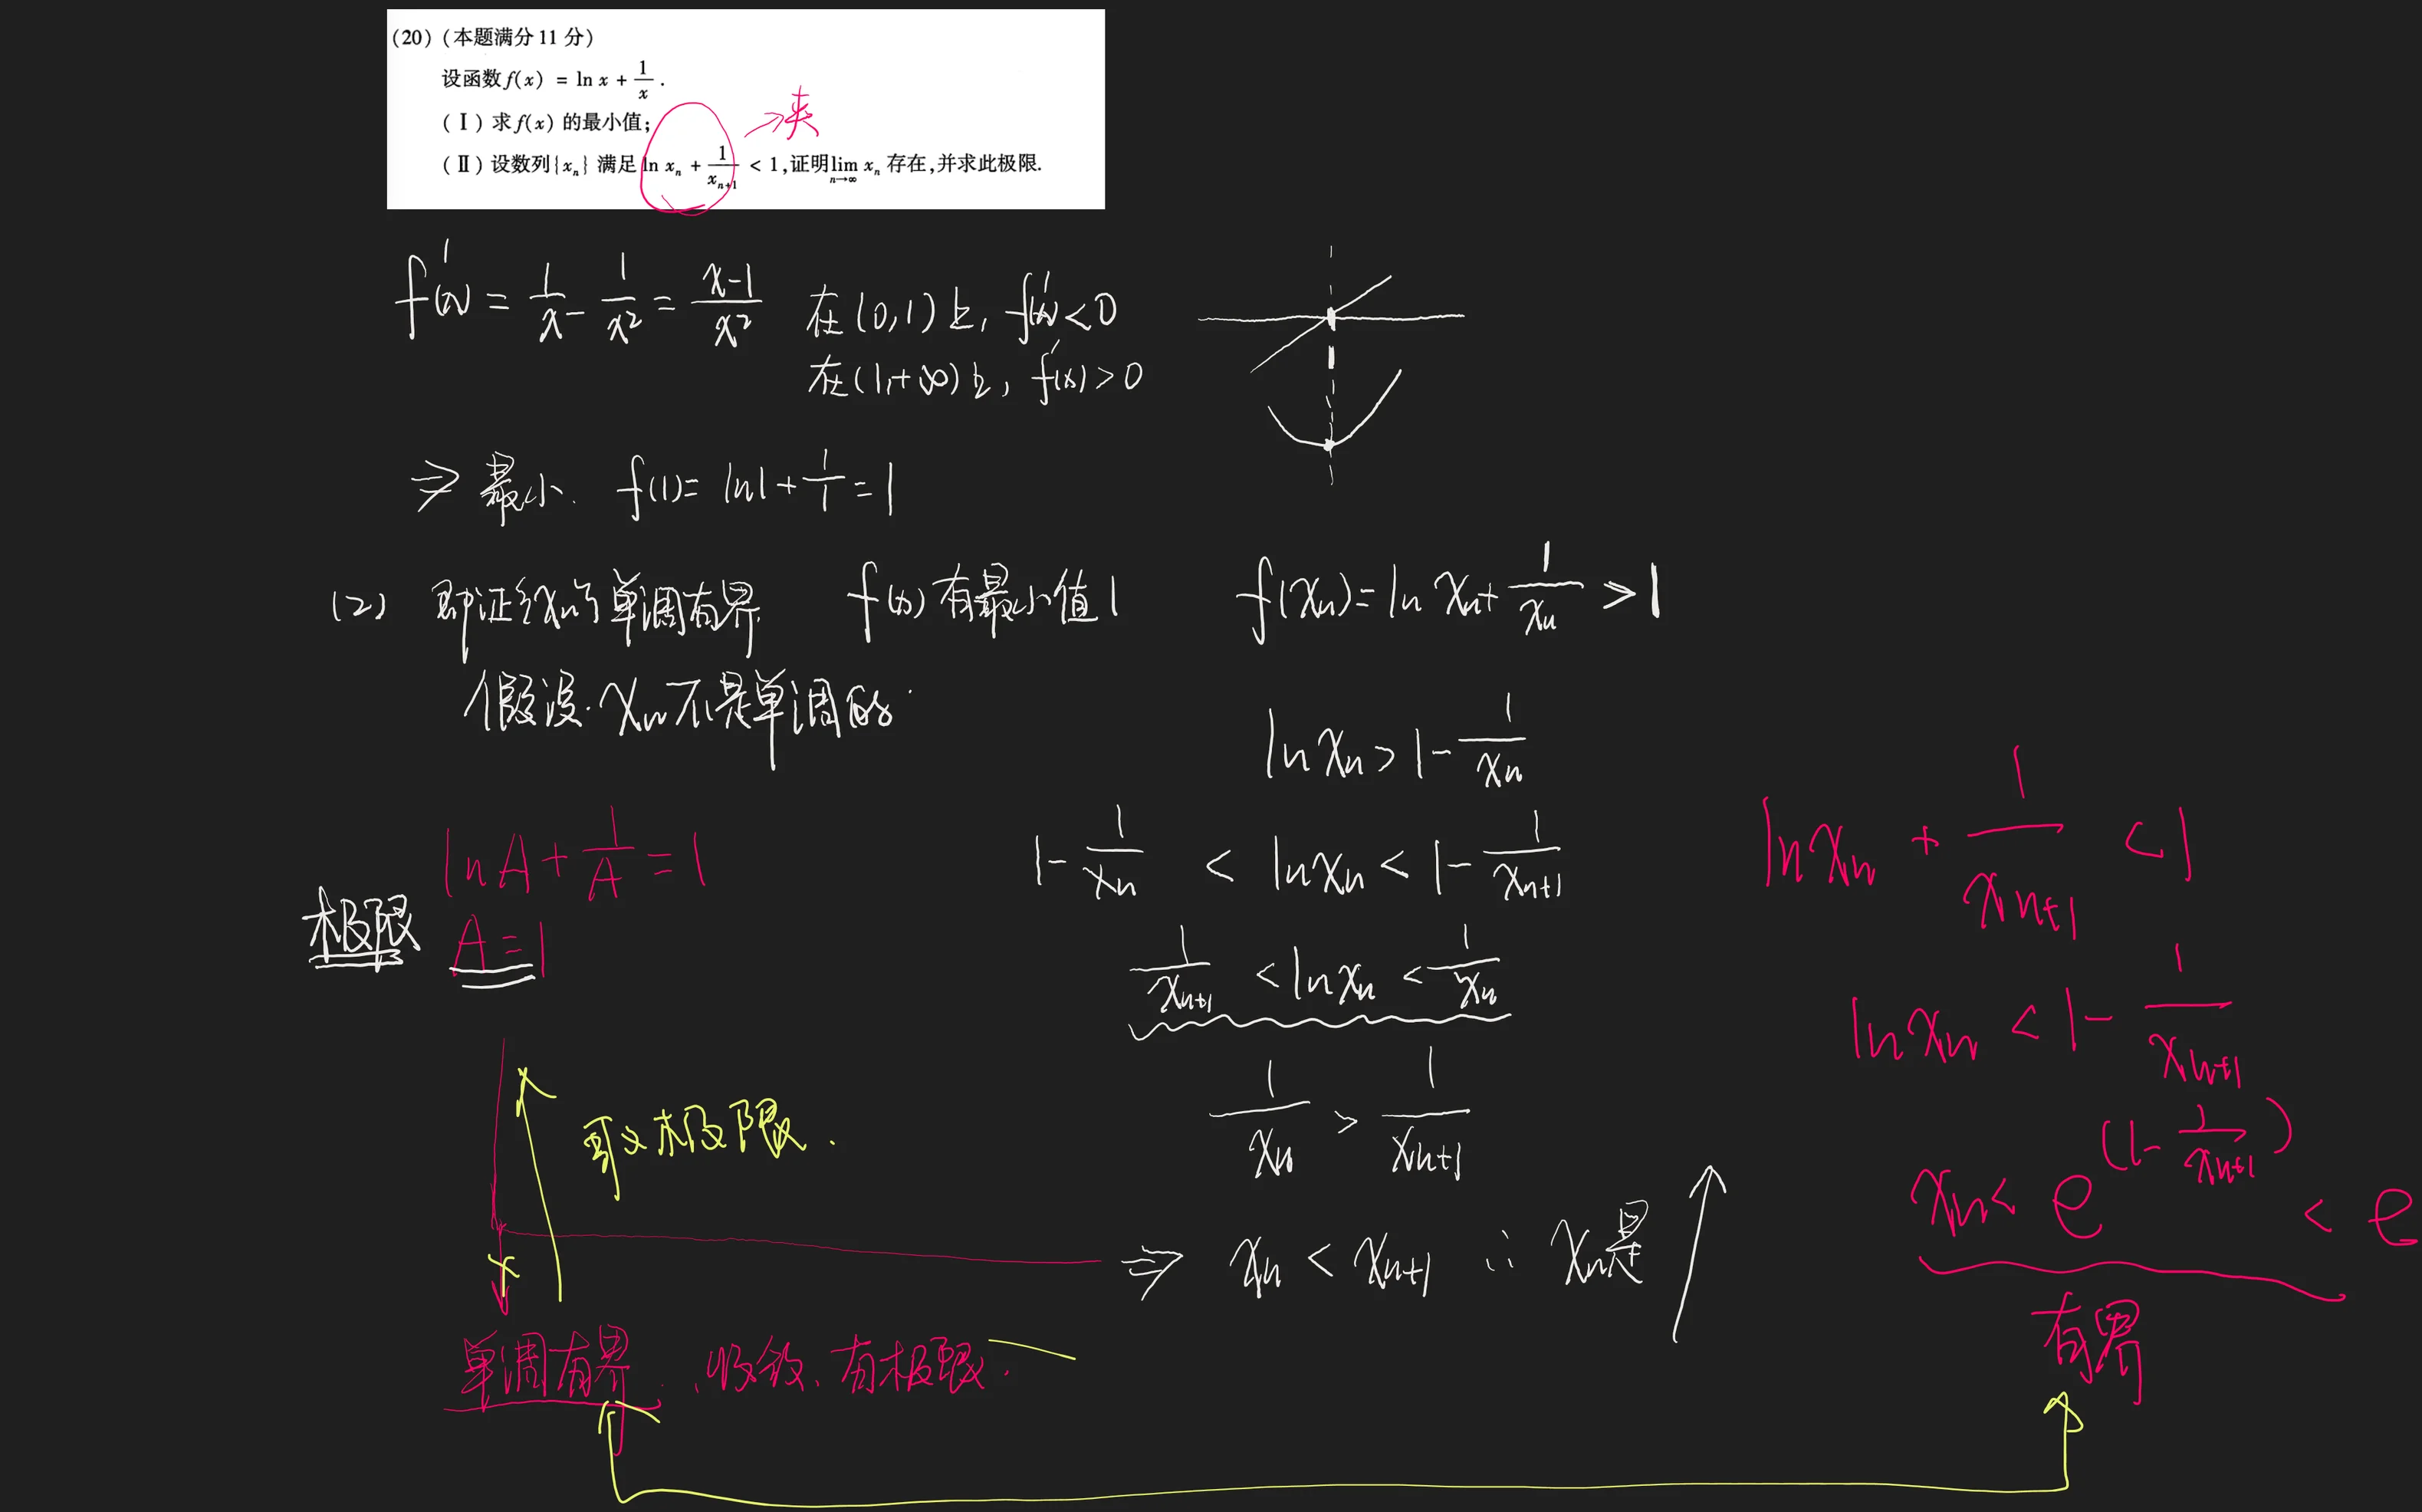 (20) (本题满分 11 分)
设函数 f(x) = ln x + 1/x .
(Ⅰ) 求 f(x) 的最小值;
(Ⅱ) 设数列{xₙ} 满足 ln xₙ + 1/xₙ₊₁ < 1, 证明 lim n→∞ xₙ 存在, 并求此极限.
→夹
f'(x) = 1/x - 1/x² = (x-1)/x² 在(0,1)上, f'(x)<0
在(1,+∞)上, f'(x)>0
⇒ 最小. f(1)= ln1 + 1/1 = 1
(2) 即证{xₙ}单调有界. f(x)有最小值1 f(xₙ)= ln xₙ + 1/xₙ > 1
假设. xₙ不是单调的.
ln xₙ > 1 - 1/xₙ
ln A + 1/A = 1
极限 A = 1
1 - 1/xₙ < ln xₙ < 1 - 1/xₙ₊₁
1/xₙ₊₁ < ln xₙ < 1/xₙ
1/xₙ > 1/xₙ₊₁
⇒ xₙ < xₙ₊₁ ∴ xₙ是↑
ln xₙ + 1/xₙ₊₁ < 1
ln xₙ < 1 - 1/xₙ₊₁
xₙ < e^(1 - 1/xₙ₊₁) < e
有界
求极限.
单调有界, 收敛, 有极限.